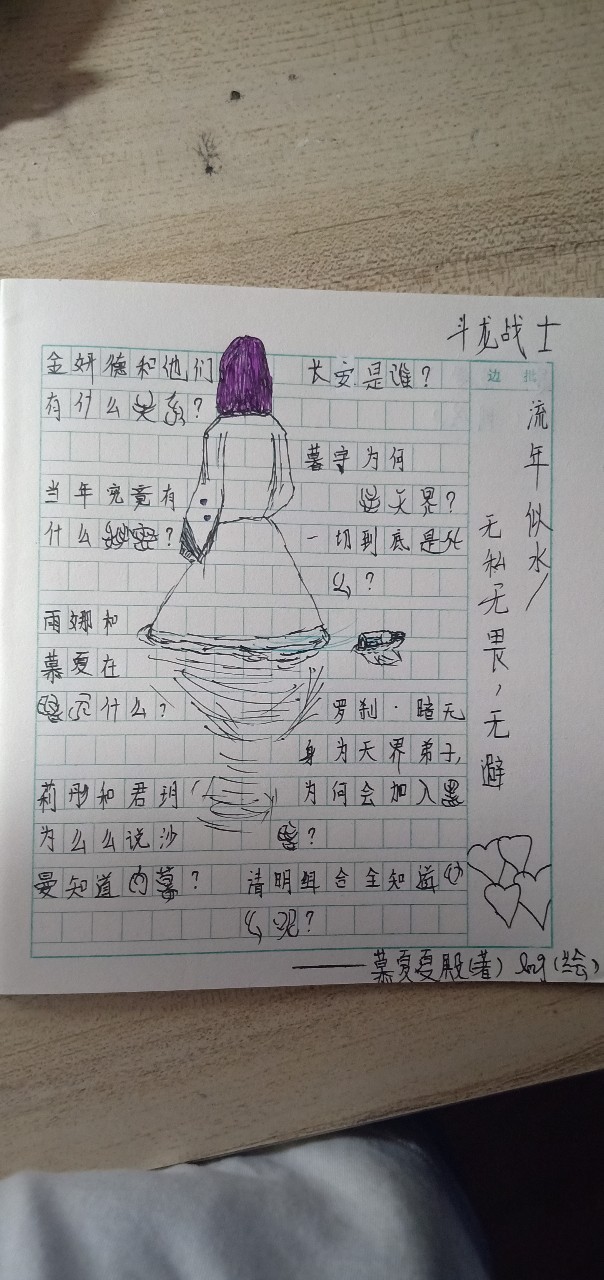 斗龙战士
边 批
流年似水
无私无畏,无避
金妍德和他们
有什么关系?
当年究竟有
什么秘密?
雨娜和
慕夏在
什么?
莉彤和君玥
为么么说沙
曼知道内幕?
长安是谁?
慕宇为何
天界?
一切到底是
么?
罗刹·暗无
身为天界弟子,
为何会加入黑
?
请明组合全知道
么呢?
——慕夏夏殿(著) (绘)